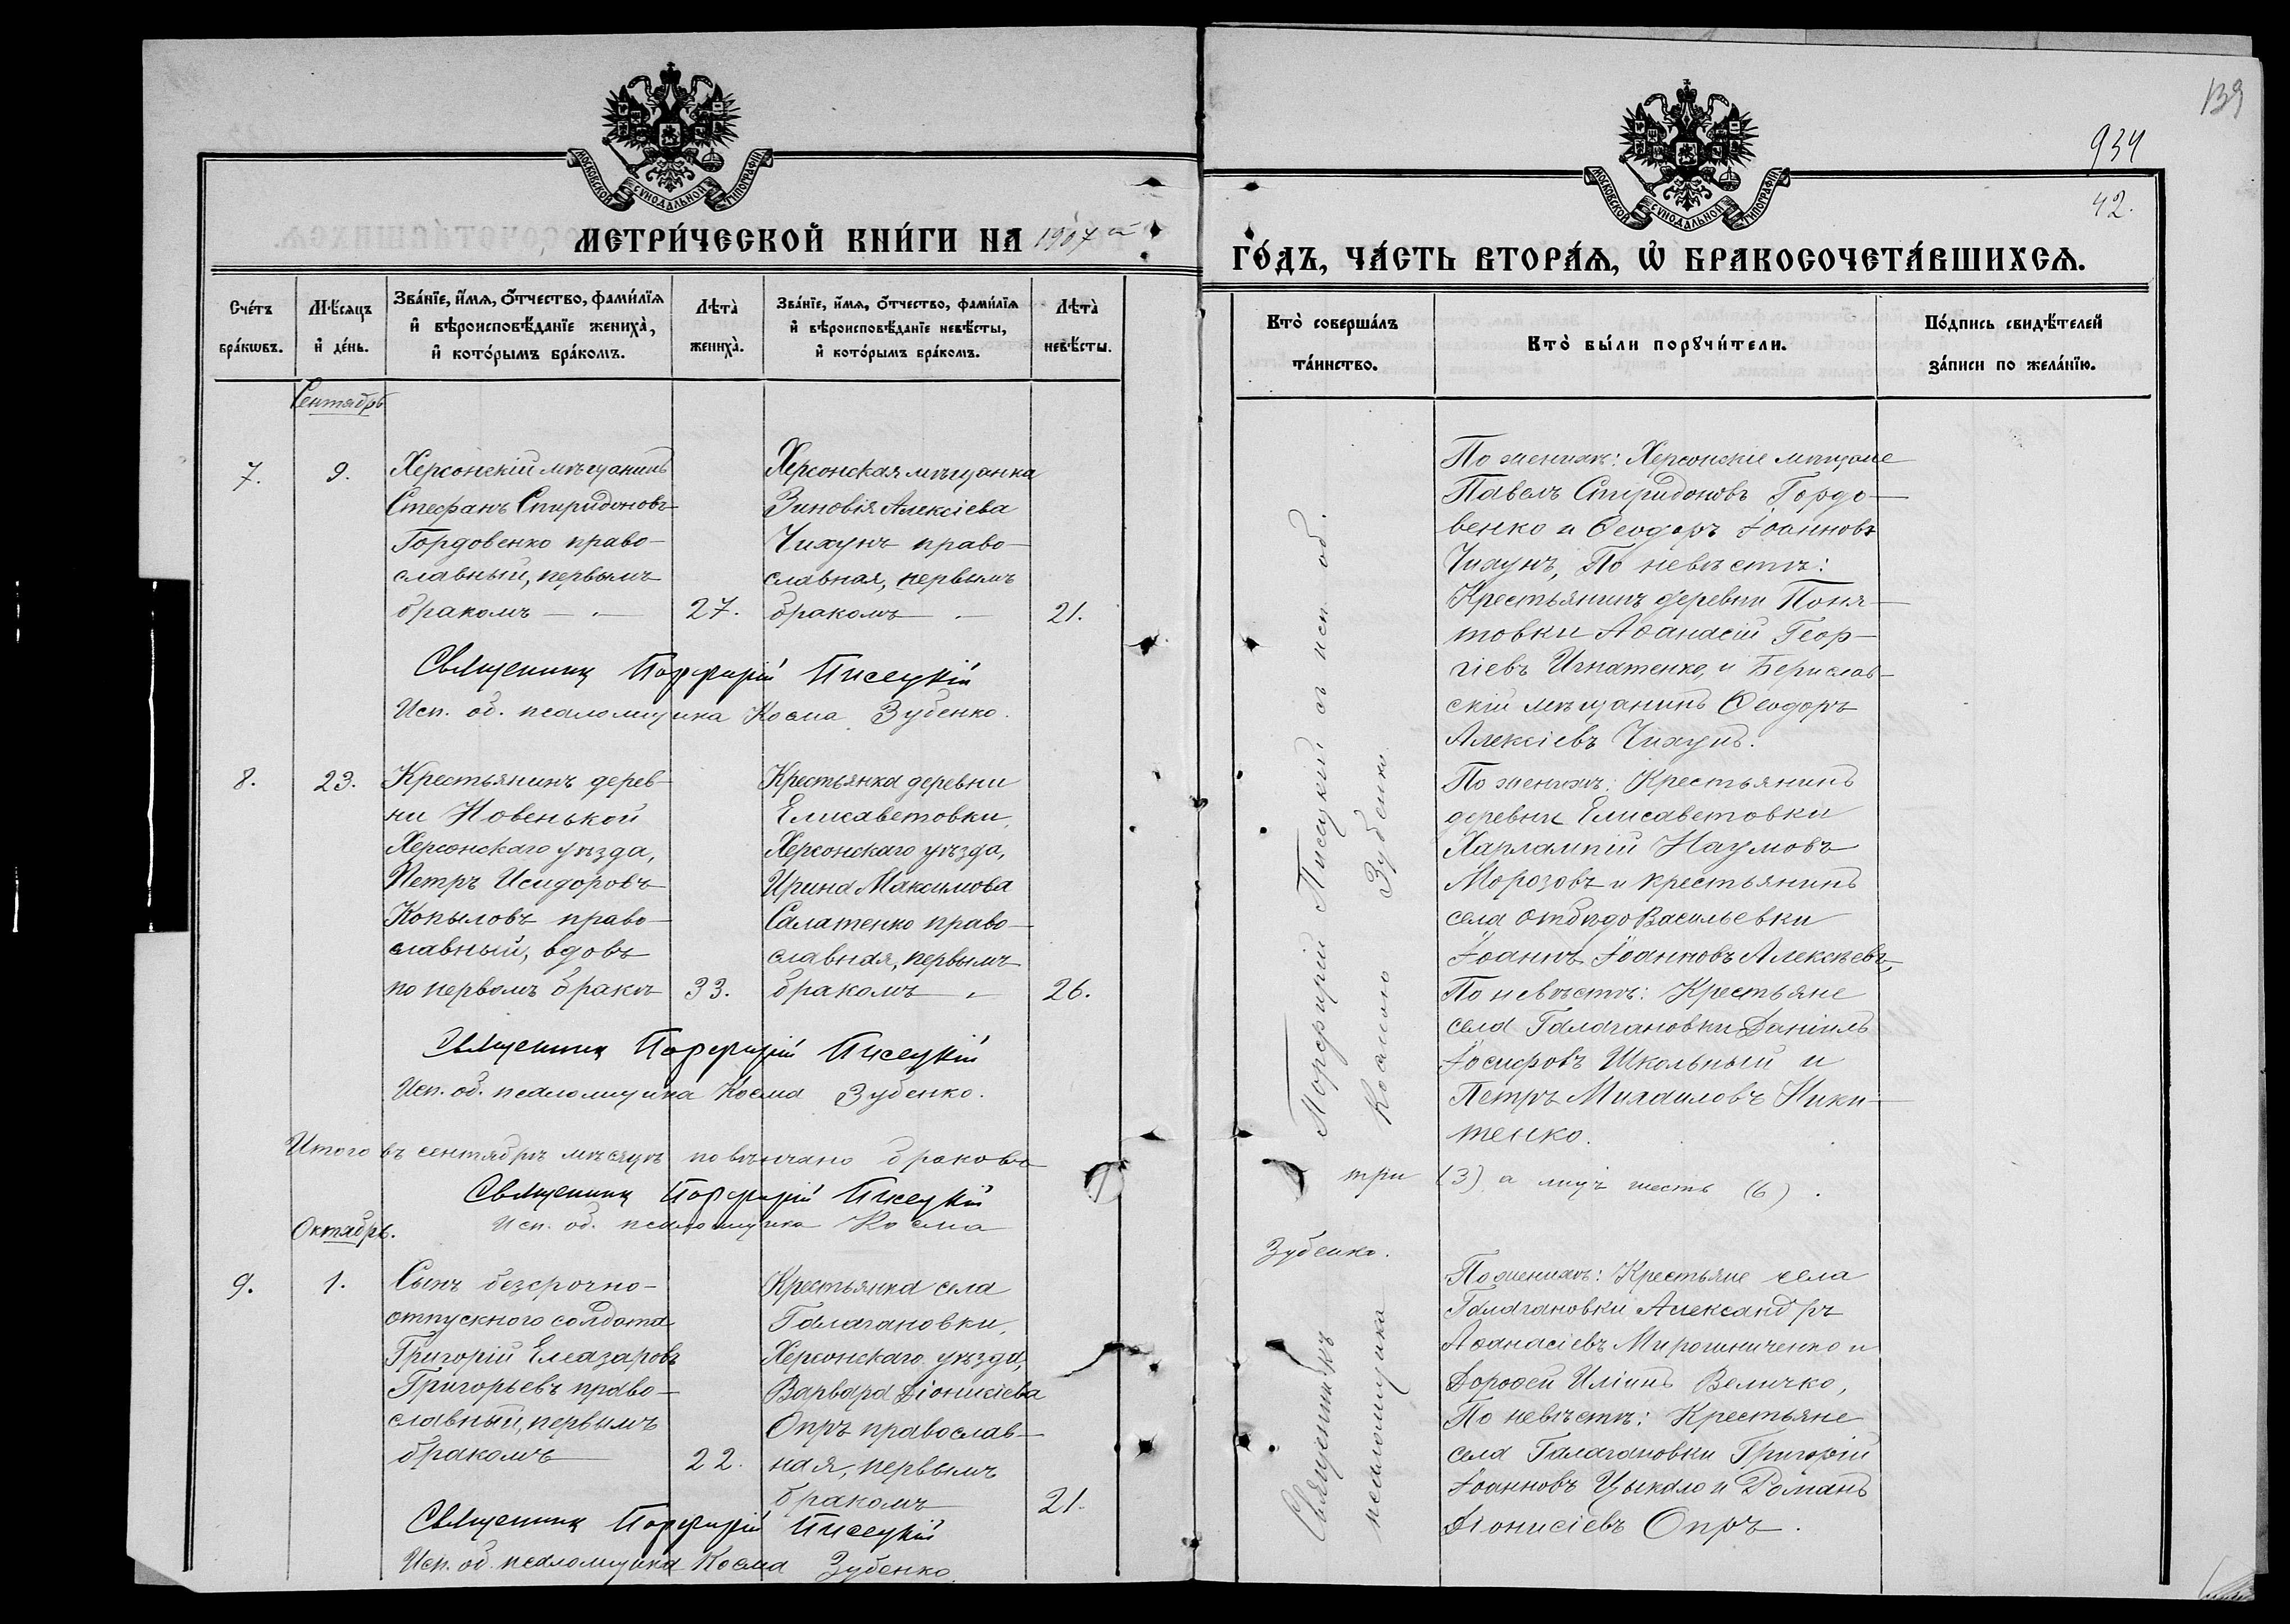 139
934
42.
МОСКОВСКОЙ СУНОДАЛЬНОЙ ТИПОГРАФІИ
МОСКОВСКОЙ СУНОДАЛЬНОЙ ТИПОГРАФІИ
МЕТРИ́ЧЕСКОЙ КНИ́ГИ НА 1907 й
ГО́ДЪ, ЧА́СТЬ ВТОРА́Ѧ, Ѡ҆ БРАКОСОЧЕТА́ВШИХСѦ.
Сче́тъ
бра́кѡвъ.
Мѣ́сѧцъ
и҆ де́нь.
Зва́нїе, и҆́мѧ, ѻ҆́тчество, фами́лїѧ
и҆ вѣроисповѣ́данїе жениха̀,
и҆ кото́рымъ бра́комъ.
Лѣта̀
жениха̀.
Зва́нїе, и҆́мѧ, ѻ҆́тчество, фами́лїѧ
и҆ вѣроисповѣ́данїе невѣ́сты,
и҆ кото́рымъ бра́комъ.
Лѣта̀
невѣ́сты.
Кто̀ соверша́лъ
та́инство.
Кто̀ бы́ли порꙋчи́тели.
По́дпись свидѣ́телей
за́писи по жела́нїю.
Сентябрь
7.
9.
Херсонскій мѣщанинъ
Стефанъ Спиридоновъ
Гордовенко право-
славный, первымъ
бракомъ — 27.
Херсонская мѣщанка
Зиновія Алексіева
Чихунъ право-
славная, первымъ
бракомъ — 21.
Священникъ Порфирій Писецкій
Исп. об. псаломщика Косма Зубенко.
По женихѣ: Херсонскіе мѣщане
Павелъ Спиридоновъ Гордо-
венко и Ѳеодоръ Іоанновъ
Чихунъ, По невѣстѣ:
Крестьянинъ деревни Поня-
товки Аѳанасій Геор-
гіевъ Игнатенко, и Берислав-
скій мѣщанинъ Ѳеодоръ
Алексіевъ Чихунъ.
8.
23.
Крестьянинъ дерев-
ни Новенькой
Херсонскаго уѣзда,
Петръ Исидоровъ
Копыловъ право-
славный, вдовъ
по первомъ бракѣ 33.
Крестьянка деревни
Елисаветовки,
Херсонскаго уѣзда,
Ирина Максимова
Салатенко право-
славная, первымъ
бракомъ — 26.
Священникъ Порфирій Писецкій
Исп. об. псаломщика Косма Зубенко.
По женихѣ: Крестьянинъ
деревни Елисаветовки
Харлампій Наумовъ
Морозовъ и крестьянинъ
села Отбѣдо Васильевки
Іоаннъ Іоанновъ Алексѣевъ,
По невѣстѣ: Крестьяне
села Галагановки Даніилъ
Іосифовъ Школьный и
Петръ Михаиловъ Ники-
тенко.
Итого въ сентябрѣ мѣсяцѣ повѣнчано браковъ
три (3) а лицъ шесть (6).
Священникъ Порфирій Писецкій
Исп. об. псаломщика Косма
Зубенко.
Октябрь.
9.
1.
Сынъ безсрочно-
отпускного солдата
Григорій Елеазаровъ
Григорьевъ право-
славный, первымъ
бракомъ 22.
Крестьянка села
Галагановки,
Херсонскаго уѣзда,
Варвара Діонисіева
Опръ православ-
ная, первымъ
бракомъ 21.
Священникъ Порфирій Писецкій
Исп. об. псаломщика Косма Зубенко.
По женихѣ: Крестьяне села
Галагановки Александръ
Аѳанасіевъ Мирошниченко и
Дороѳей Иліинъ Величко,
По невѣстѣ: Крестьяне
села Галагановки Григорій
Іоанновъ Цыкало и Романъ
Діонисіевъ Опръ.
Священникъ Порфирій Писецкій съ исп. об.
псаломщика Космою Зубенко.